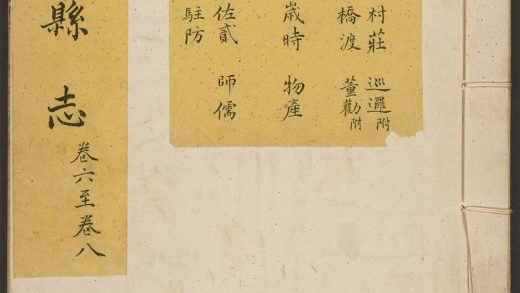 村莊 巡邏附
橋渡 董勸附
歲時 物產
佐貳 師儒
駐防
縣志 卷六至卷八